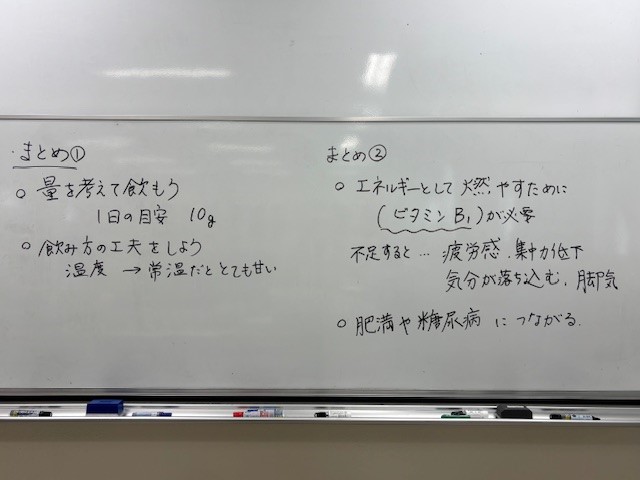 ・まとめ①
○ 量を考えて飲もう
1日の目安 10g
○ 飲み方の工夫をしよう
温度 → 常温だととても甘い
まとめ②
○ エネルギーとして燃やすために
(ビタミンB₁)が必要
不足すると… 疲労感、集中力低下
気分が落ち込む、脚気
○ 肥満や糖尿病につながる.